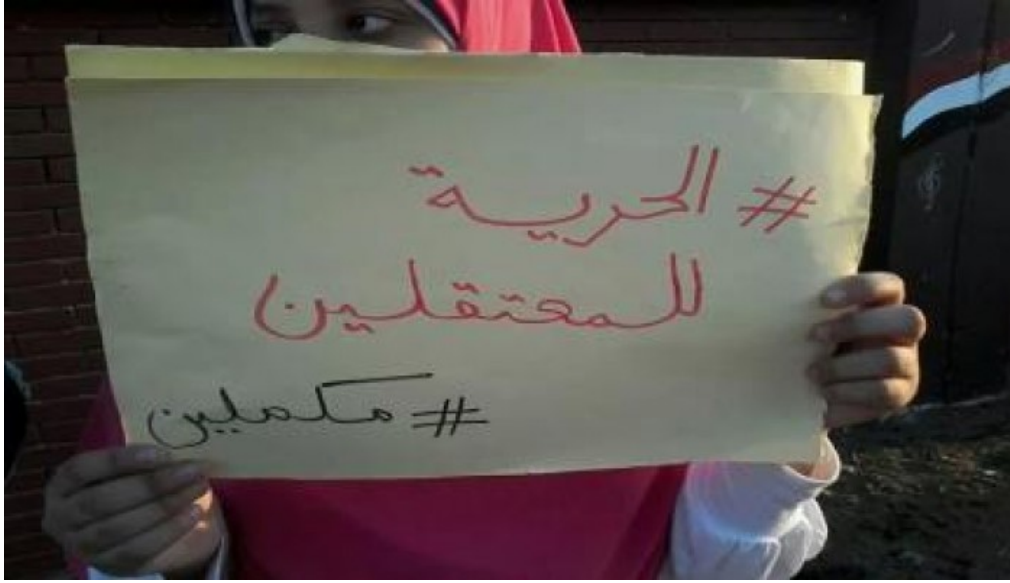 # الحرية
للمعتقلين
# مكملين